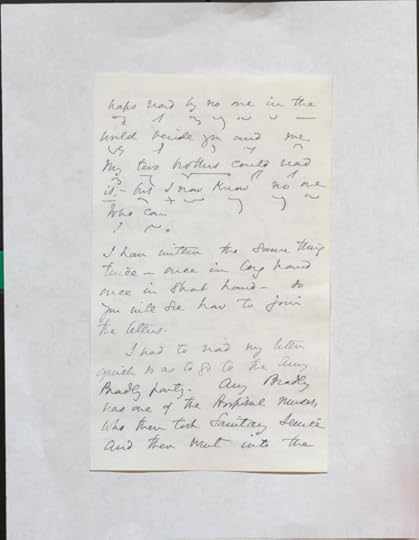 haps read by no one in the
world beside you and me
My two brothers could read
it, - but I now know no one
Who can
I have written the same thing
twice - once in long hand
once in Short hand - so
you will see how to join
the letters.
I had to read my letter
quick so as to go to the Amy
Bradly party. Amy Bradly
was one of the Hospital nurses,
who then took Sanitary Service
and then went into the